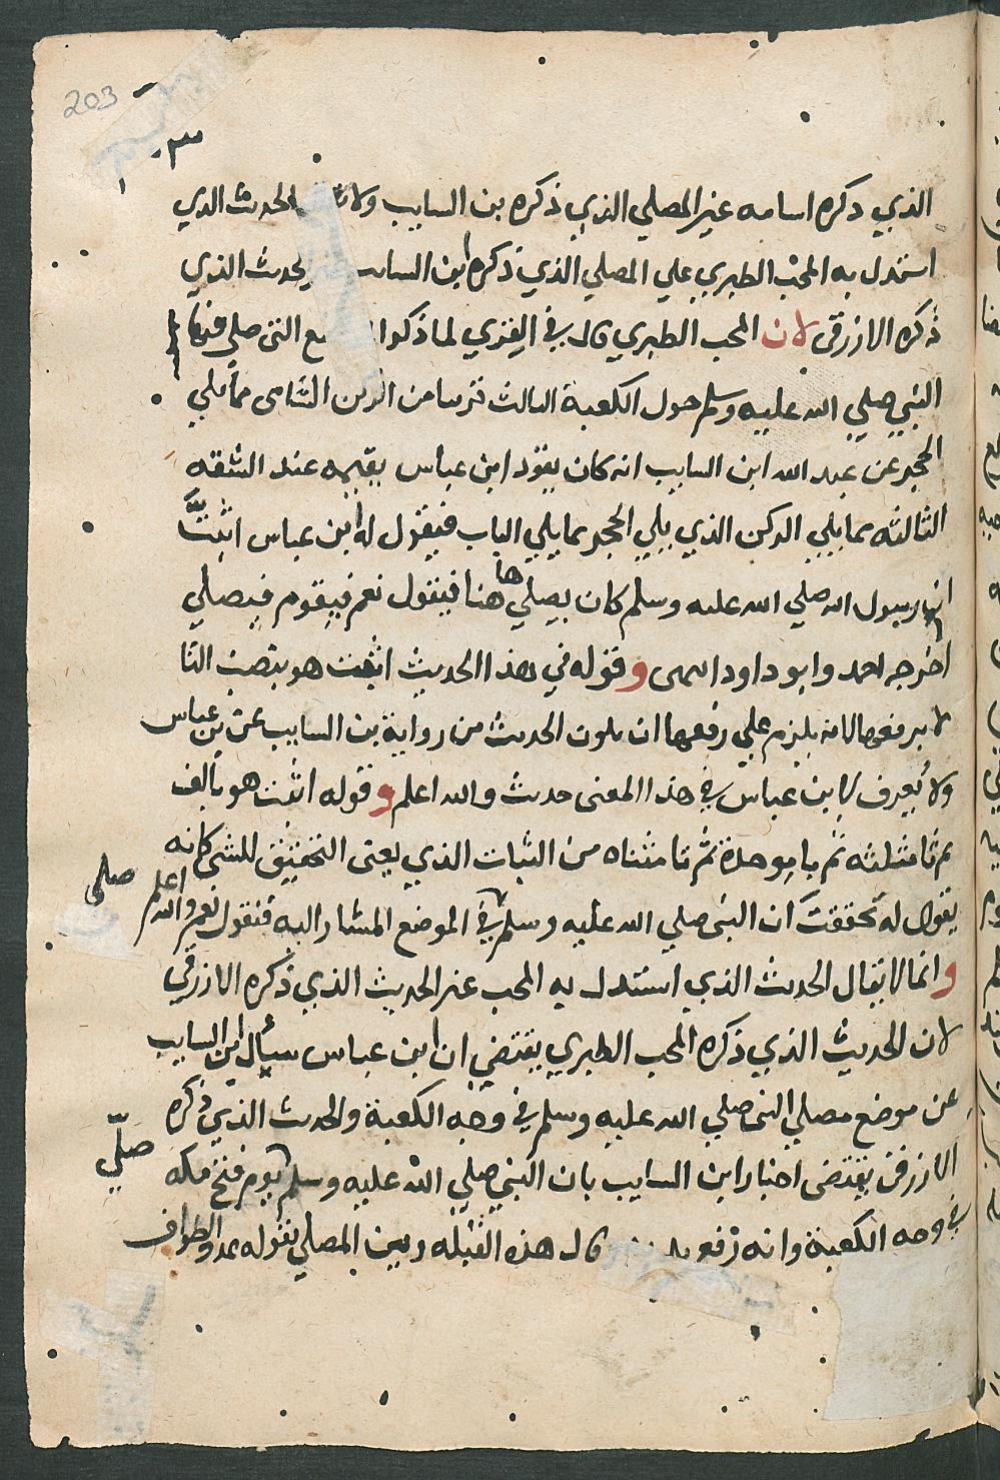 203
الذي ذكره اسامه غير المصلي الذي ذكره بن السايب ولان الحديث الذي
استدل به المحب الطبري علي المصلي الذي ذكره ابن السايب الحديث الذي
ذكره الازرقي لان المحب الطبري قال في القري لما ذكر المواضع التي صلي فيها
النبي صلي الله عليه وسلم حول الكعبة الثالث قريبا من الركن الشامي مما يلي
الحجر عن عبد الله ابن السايب انه كان يقود ابن عباس يقيمه عند الشقه
الثالثه مما يلي الركن الذي يلي الحجر مما يلي الباب فيقول له ابن عباس اثبتّ
ان رسول الله صلي الله عليه وسلم كان يصلي ها هنا فيقول نعم فيقوم فيصلي
اخرجه احمد وابو داود انتهي وقوله في هذا الحديث اثبت هو بنصب التا
لا برفعها لانه يلزم علي رفعها ان يكون الحديث من رواية بن السايب عن بن عباس
ولا يعرف لابن عباس في هذا المعنى حديث والله اعلم وقوله اثبت هو بالف
ثم ثا مثلثه ثم با موحدة ثم تا مثناه من الثبات الذي يعني التحقيق للشي كانه
يقول له تحققت ان النبي صلي الله عليه وسلم في الموضع المشار اليه فيقول نعم والله اعلم
صلي
وانما لا يقال الحديث الذي استدل به المحب غير الحديث الذي ذكره الازرقي
لان الحديث الذي ذكره المحب الطبري يقتضي ان ابن عباس سيأل ابن السايب
عن موضع مصلي النبي صلي الله عليه وسلم في وجه الكعبة والحديث الذي ذكره
الازرقي يقتضى اخبار ابن السايب بان النبي صلي الله عليه وسلم يوم فتح مكه
صلّي
في وجه الكعبة وانه رفع قال هذه القبله وبين المصلي بقوله والطواف